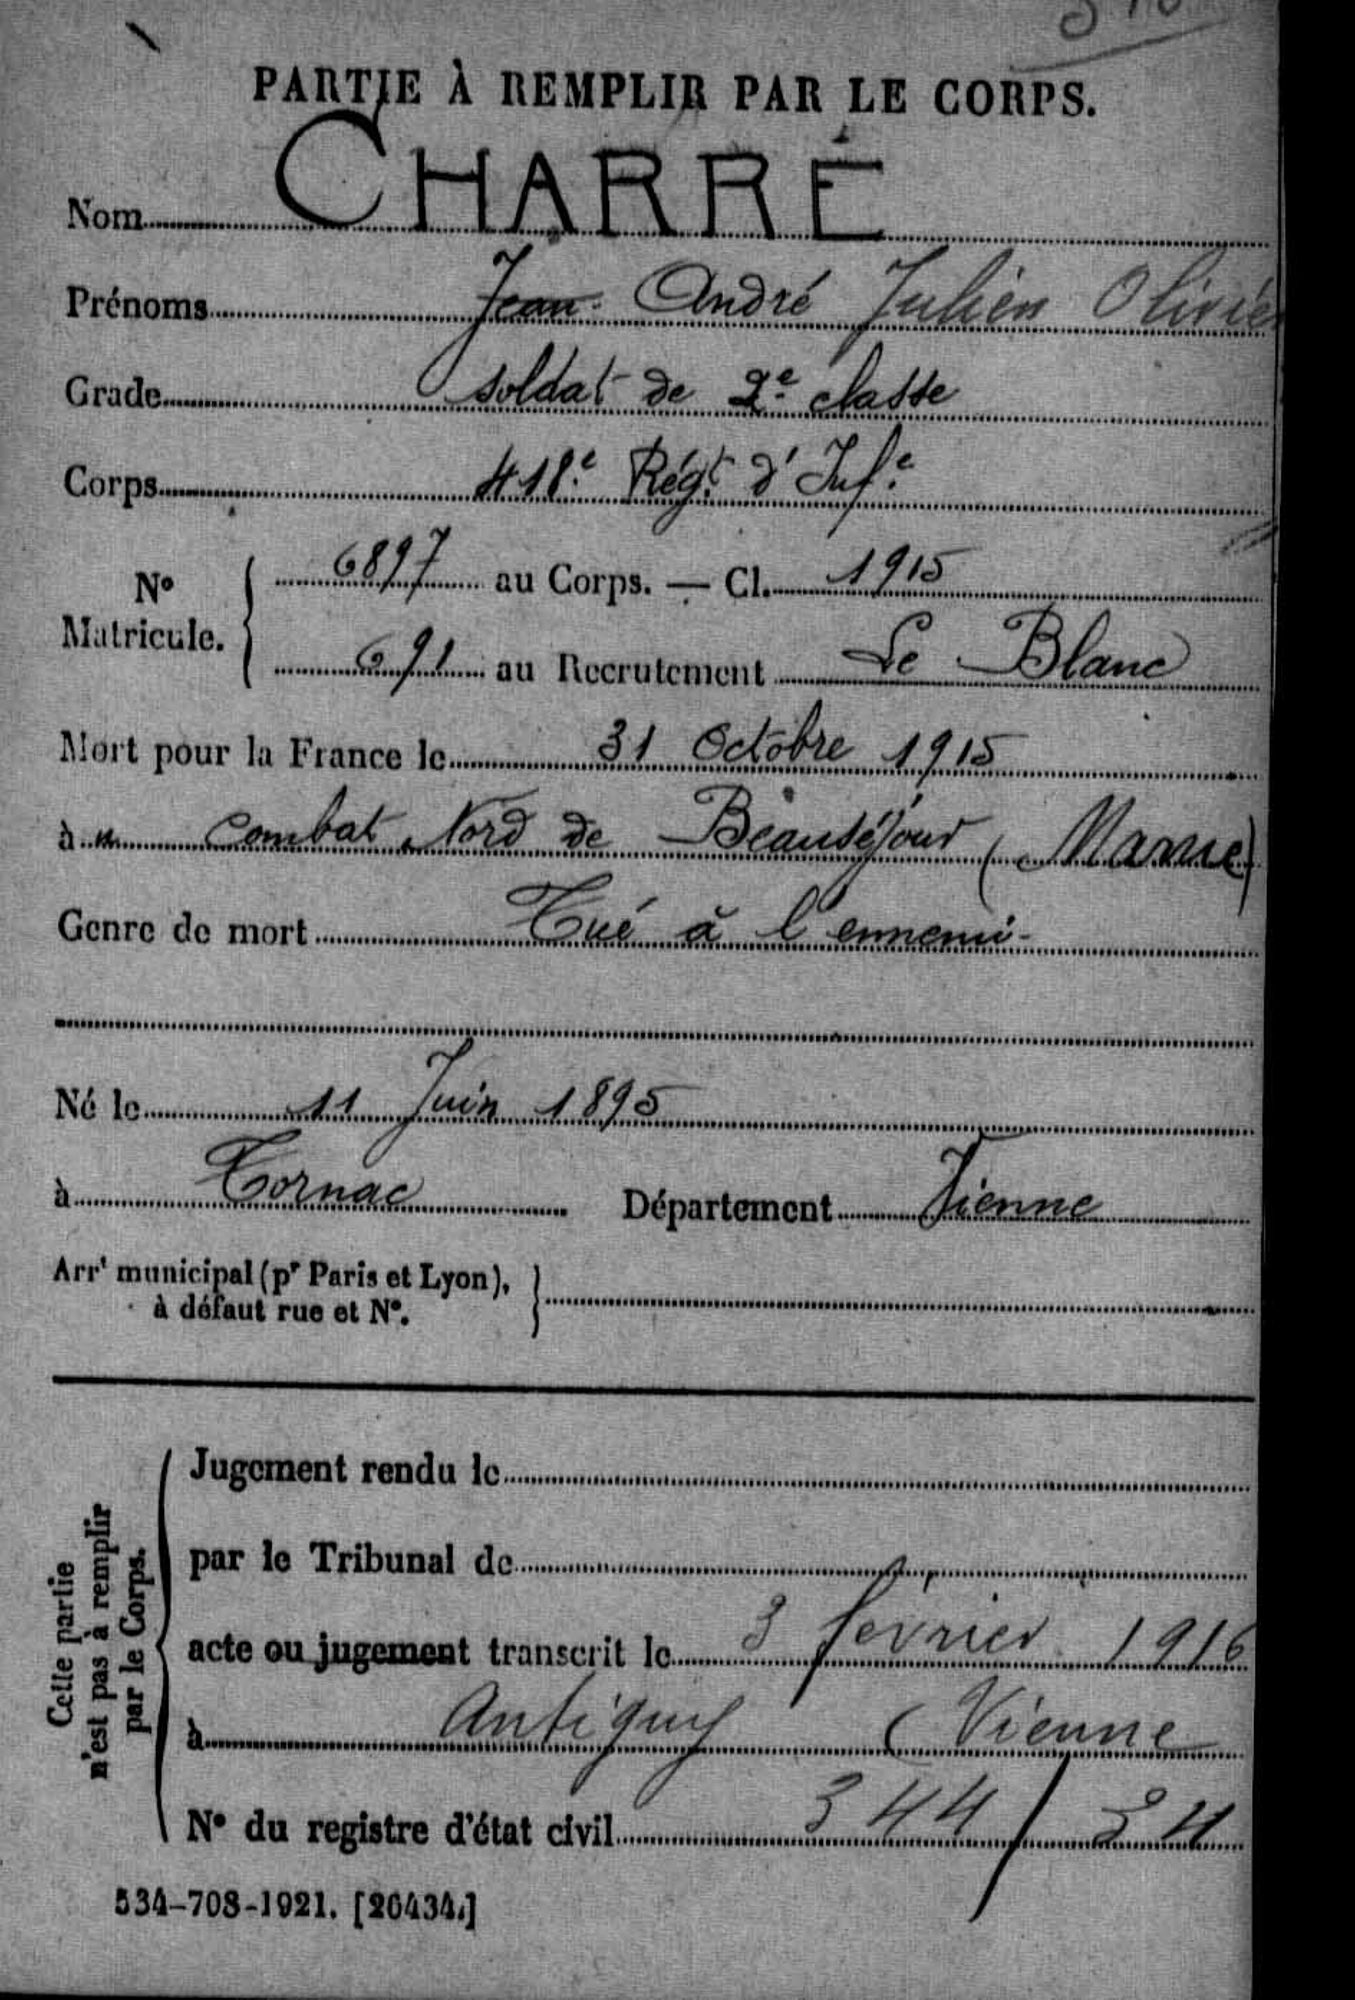 PARTIE À REMPLIR PAR LE CORPS.
Nom CHARRÉ
Prénoms Jean André Julien Olivier
Grade Soldat de 2e classe
Corps 418e Régt d'Infie
No Matricule. 6897 au Corps. — Cl. 1915
691 au Recrutement Le Blanc
Mort pour la France le 31 Octobre 1915
à u combat Nord de Beauséjour (Marne)
Genre de mort Tué à l'ennemi
Né le 11 Juin 1895
à Tornac Département Vienne
Arrt municipal (pr Paris et Lyon),
à défaut rue et No.
Cette partie
n'est pas à remplir
par le Corps.
Jugement rendu le
par le Tribunal de
acte ou jugement transcrit le 3 février 1916
à Antigny (Vienne
No du registre d'état civil 344/24
534-708-1921. [26434.]